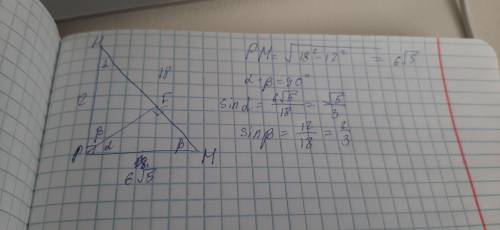 К
α
18
12
E
β
P
α
β
M
6√5
PM = √18² - 12² = 6√5
α + β = 90°
sin α = 6√5/18 = √5/3
sin β = 12/18 = 2/3